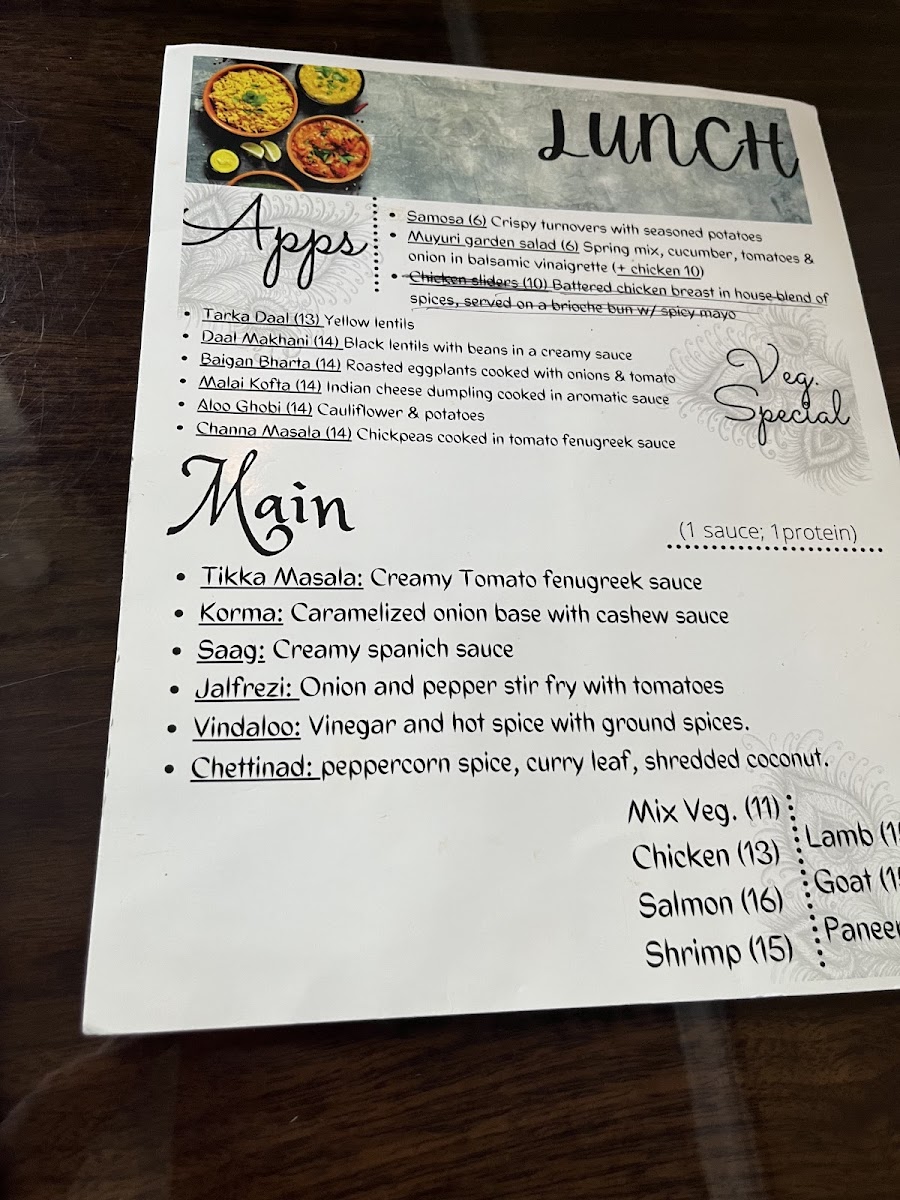 LUNCH
Apps
• Samosa (6) Crispy turnovers with seasoned potatoes
• Muyuri garden salad (6) Spring mix, cucumber, tomatoes &
onion in balsamic vinaigrette (+ chicken 10)
• Chicken sliders (10) Battered chicken breast in house blend of
spices, served on a brioche bun w/ spicy mayo
• Tarka Daal (13) Yellow lentils
• Daal Makhani (14) Black lentils with beans in a creamy sauce
• Baigan Bharta (14) Roasted eggplants cooked with onions & tomato
• Malai Kofta (14) Indian cheese dumpling cooked in aromatic sauce
• Aloo Ghobi (14) Cauliflower & potatoes
• Channa Masala (14) Chickpeas cooked in tomato fenugreek sauce
Veg.
Special
Main
(1 sauce; 1protein)
• Tikka Masala: Creamy Tomato fenugreek sauce
• Korma: Caramelized onion base with cashew sauce
• Saag: Creamy spanich sauce
• Jalfrezi: Onion and pepper stir fry with tomatoes
• Vindaloo: Vinegar and hot spice with ground spices.
• Chettinad: peppercorn spice, curry leaf, shredded coconut.
Mix Veg. (11)
Chicken (13)
Salmon (16)
Shrimp (15)
Lamb
Goat
Paneer